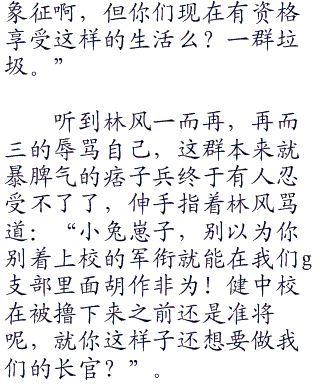 象征啊，但你们现在有资格
享受这样的生活么？一群垃
圾。”
听到林风一而再，再而
三的辱骂自己，这群本来就
暴脾气的痞子兵终于有人忍
受不了了，伸手指着林风骂
道：“小兔崽子，别以为你
别着上校的军衔就能在我们g
支部里面胡作非为！健中校
在被撸下来之前还是准将
呢，就你这样子还想要做我
们的长官？”。